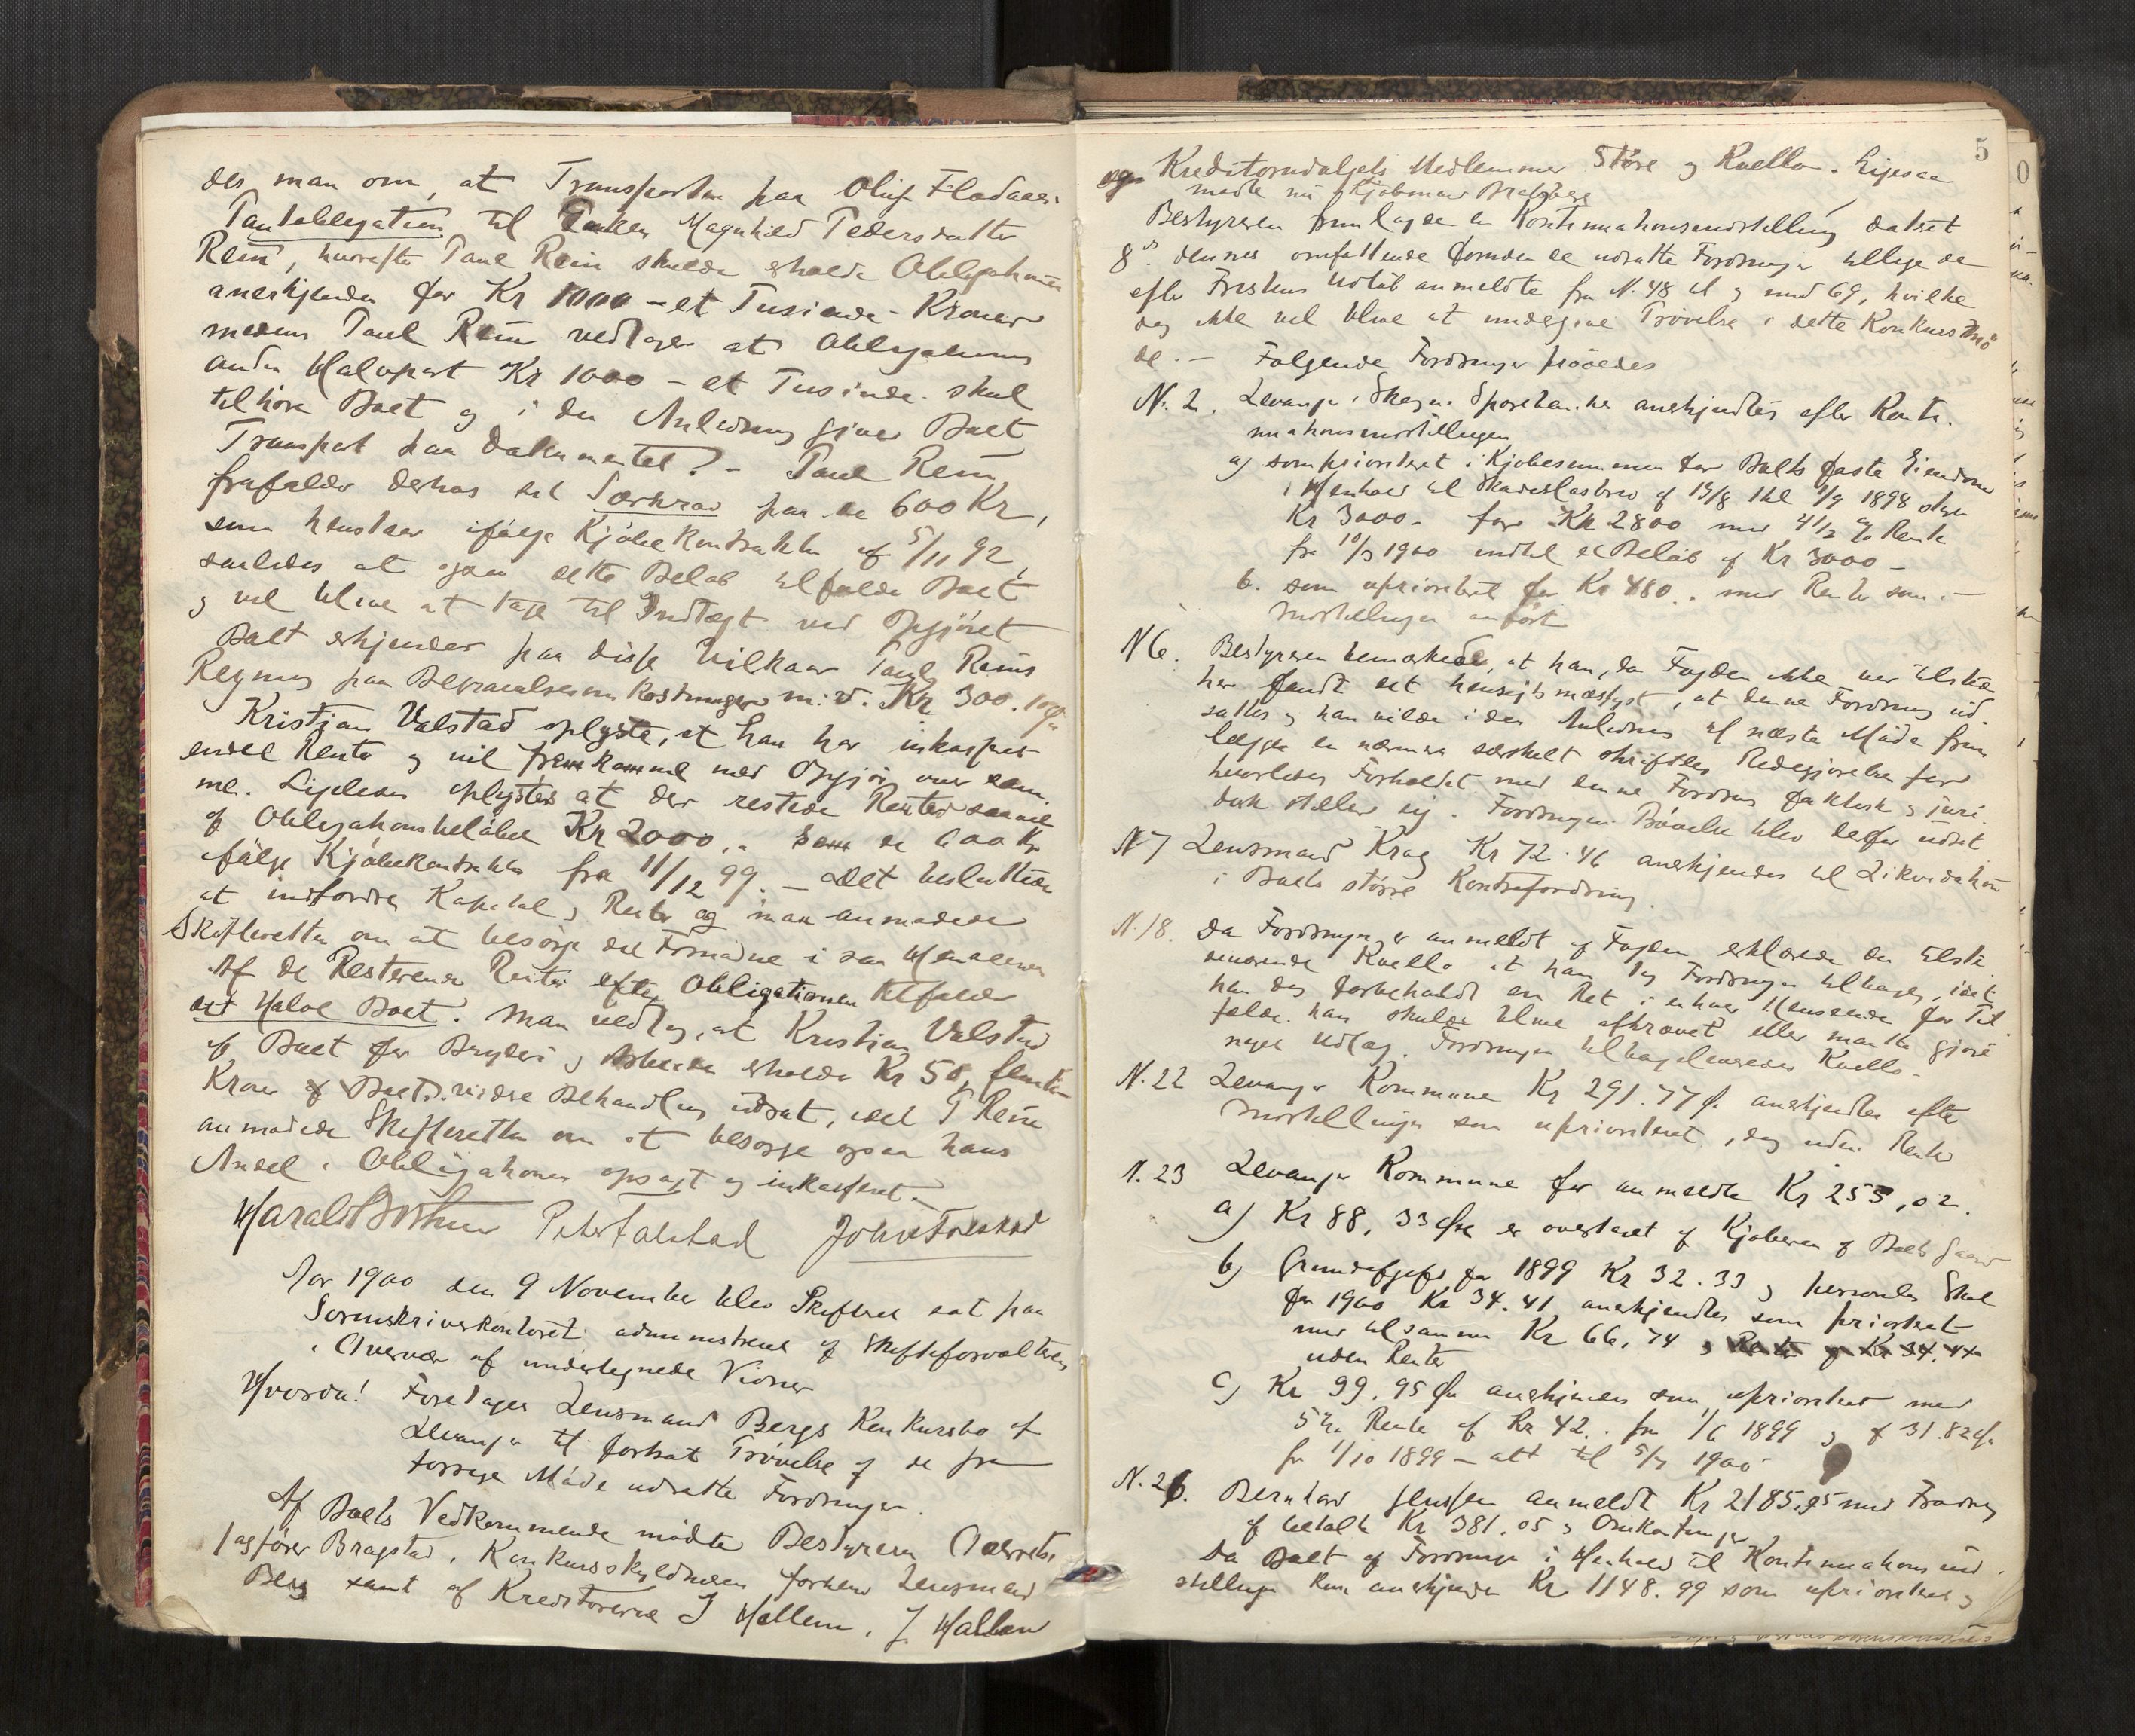 des man om, at Transporten paa Oluf Flodaaes
Pantobligation til Magnhild Pedersdatter
Rein, hvorefter Paul Rein skulde erholde Obligationen
anerkjendes for Kr 1000 - et Tusinde - Kroner
medens Paul Rein vedtager at Obligationens
anden Halvpart Kr 1000 - et Tusinde skal
tilhøre Boet og i den Anledning giver Boet
Transport paa Dokumentet. - Paul Rein
frafalder derhos sit Særkrav paa de 600 Kr,
som henstaar ifølge Kjøbekontrakten af 5/11 92,
saaledes at ogsaa dette Beløb tilfalder Boet
og vil blive at tage til Indtægt ved Opgjøret
Boet erkjender paa disse Vilkaar Paul Reins
Regning paa Begravelsesomkostninger m:v. Kr 300.
Kristjan Valstad oplyste, at han har inkasseret
endel Renter og vil fremkomme med Opgjør over sam-
me. Ligeledes oplystes at der restede Renter saavel
af Obligationsbeløbet Kr 2000,- som de 600 Kr
ifølge Kjøbekontrakten fra 11/12 99. - Det besluttedes
at indfordre Kapital og Renter og man anmodede
Skifteretten om at besørge det Fornødne i saa Henseende
Af de Resterende Renter efter Obligationen tilfalder
det Halve Boet. Man vedtog, at Kristian Valstad
af Boet for Bryderi og Arbeide erholder Kr 50, femti
Kroner Boets videre Behandling udsat, idet P Rein
anmodede Skifteretten om at besørge ogsaa hans
Andel i Obligationen opsagt og inkasseret.
Peter Falstad John Falstad
Aar 1900 den 9 November blev Skifteret sat paa
Sorenskriverkontoret administreret af Skifteforvalteren
i Overvær af undertegnede Vidner
Hvorda! Foretages Lensmand Bergs Konkursbo af
Levanger til fortsat Prøvelse af de fra
forrige Møde udsatte Fordringer.
Af Boets Vedkommende mødte Bestyreren Overrets-
sagfører Bragstad, Konkursskyldneren forhenv Lensmand
Berg samt af Kreditorerne I Hallem, J. Hallan
5
og Kreditorudvalgets Medlemmer Støre og Kvello. Ligesaa
mødte nu Kjøbmand
Bestyreren fremlagde en Kontinuationsindstilling dateret
8ds dennes omfattende foruden de udsatte Fordringer tillige de
efter Fristens Udløb anmeldte fra N. 48 til og med 69, hvilke
dog ikke vil blive at undergive Prøvelse i dette Konkursmø
de. - Følgende Fordringer prøvedes
N. 2. Levanger & Skogns Sparebanker anerkjendtes efter Konti-
nuationsindstillingen
a) som prioriteret i Kjøbesummen for Boets faste Eiendom
i Henhold til Skadesløsbrev af 15/8 thl 1/9 1898 stort
Kr 3000- for Kr 2800 med 4 1/2 % Rente
fra 10/3 1900 indtil et Beløb af Kr 3000 -
b. som uprioriteret for Kr 480.. med Renter som i
Indstillingen anført
N 6. Bestyreren bemærkede, at han, da Fogden ikke var tilstede
her fandt det hensigtsmæssigst, at denne Fordring ud-
sattes og han vilde i den Anledning til næste Møde frem
lægge en nærmere særskilt skriftlig Redegjørelse for
hvorledes Forholdet med denne Fordring faktisk og juri-
disk stiller sig. Fordringens Prøvelse blev derfor udsat
N 7 Lensmand Krag Kr 72.46 anerkjendes til Likvidation
i Boets større Kontrafordring.
N. 18. Da Fordringen er anmeldt af Fogden erklærede den tilste
deværende Kvello at han tog Fordringen tilbage, idet
han dog forbeholdt en Ret i enhver Henseende for Til-
fælde han skulde blive afkrævet eller maatte gjøre
noget Udlæg. Fordringen tilbageleveredes Kvello.
N. 22 Levanger Kommune Kr 291.77 Ø. anerkjendtes efter
Indstillingen som uprioriteret, dog uden Renter
N. 23 Levanger Kommune for anmeldte Kr 255,02.
a) Kr 88, 33 Øre er overtaget af Kjøberen af Boets Gaard
b) Grundafgift for 1899 Kr 32.33 og personlig Skat
for 1900 Kr 34.41 anerkjendtes som prioriteret
med tilsammen Kr 66,74
uden Renter
c) Kr 99.95 Øre anerkjendes som uprioriteret med
5% Rente af Kr 42.. fra 1/6 1899 og af 31.82 Ø
fra 1/10 1899 - alt til 5/7 1900
N. 26. Bernhard Jenssen anmeldt Kr 2185.95 med Fradrag
af betalte Kr 381.05 og Omkostninger
Da Boet af Fordringen i Henhold til Kontinuationsind-
stillingen kun anerkjender Kr 1148.99 som uprioriteret og